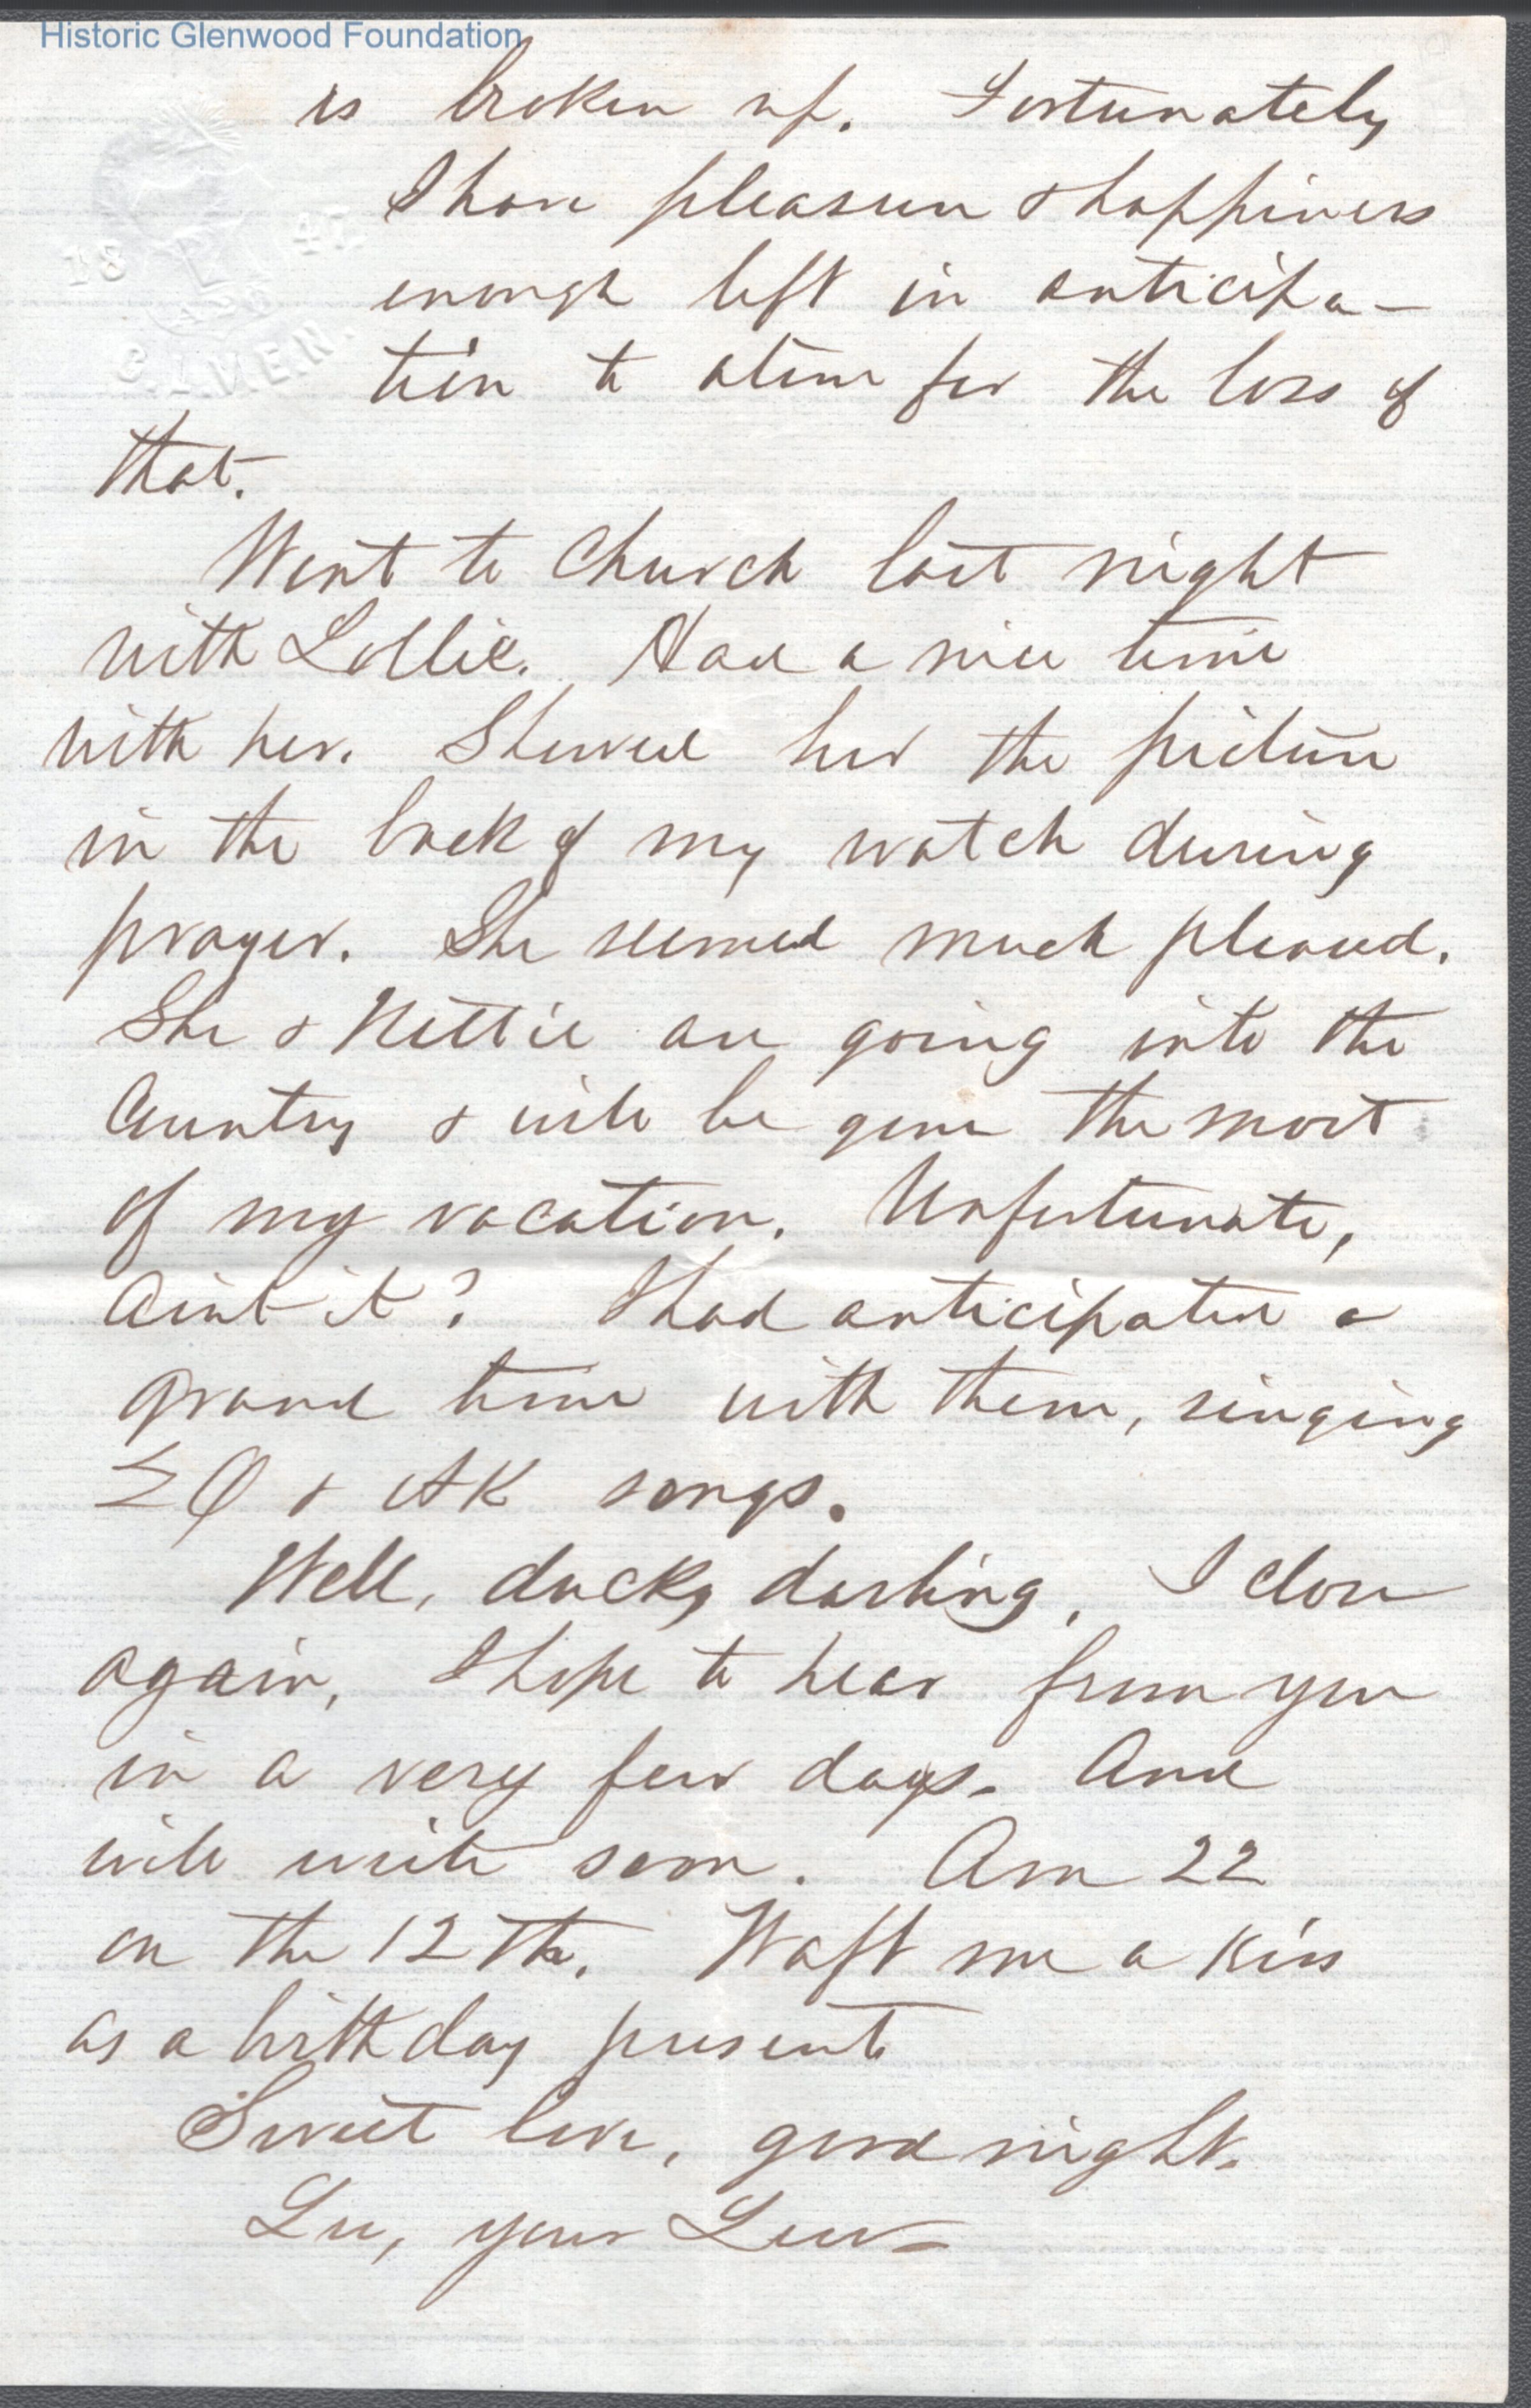 Historic Glenwood Foundation
is broken up. Fortunately
I have pleasure & happiness
enough left in anticipa-
tion to atone for the loss of
that.
Went to Church last night
with Lollie. Had a nice time
with her. Showed her the picture
in the back of my watch during
prayer. She seemed much pleased.
She & Nettie are going into the
Country & will be gone the most
of my vacation. Unfortunate,
Aint it? I had anticipated a
grand time with them, singing
ΣΦ & AK songs.
Well, ducky darling, I close
again, I hope to hear from you
in a very few days. And
will write soon. Am 22
on the 12th. Waft me a kiss
as a birthday present
Sweet love, good night.
Lu, your Lew-
18 47